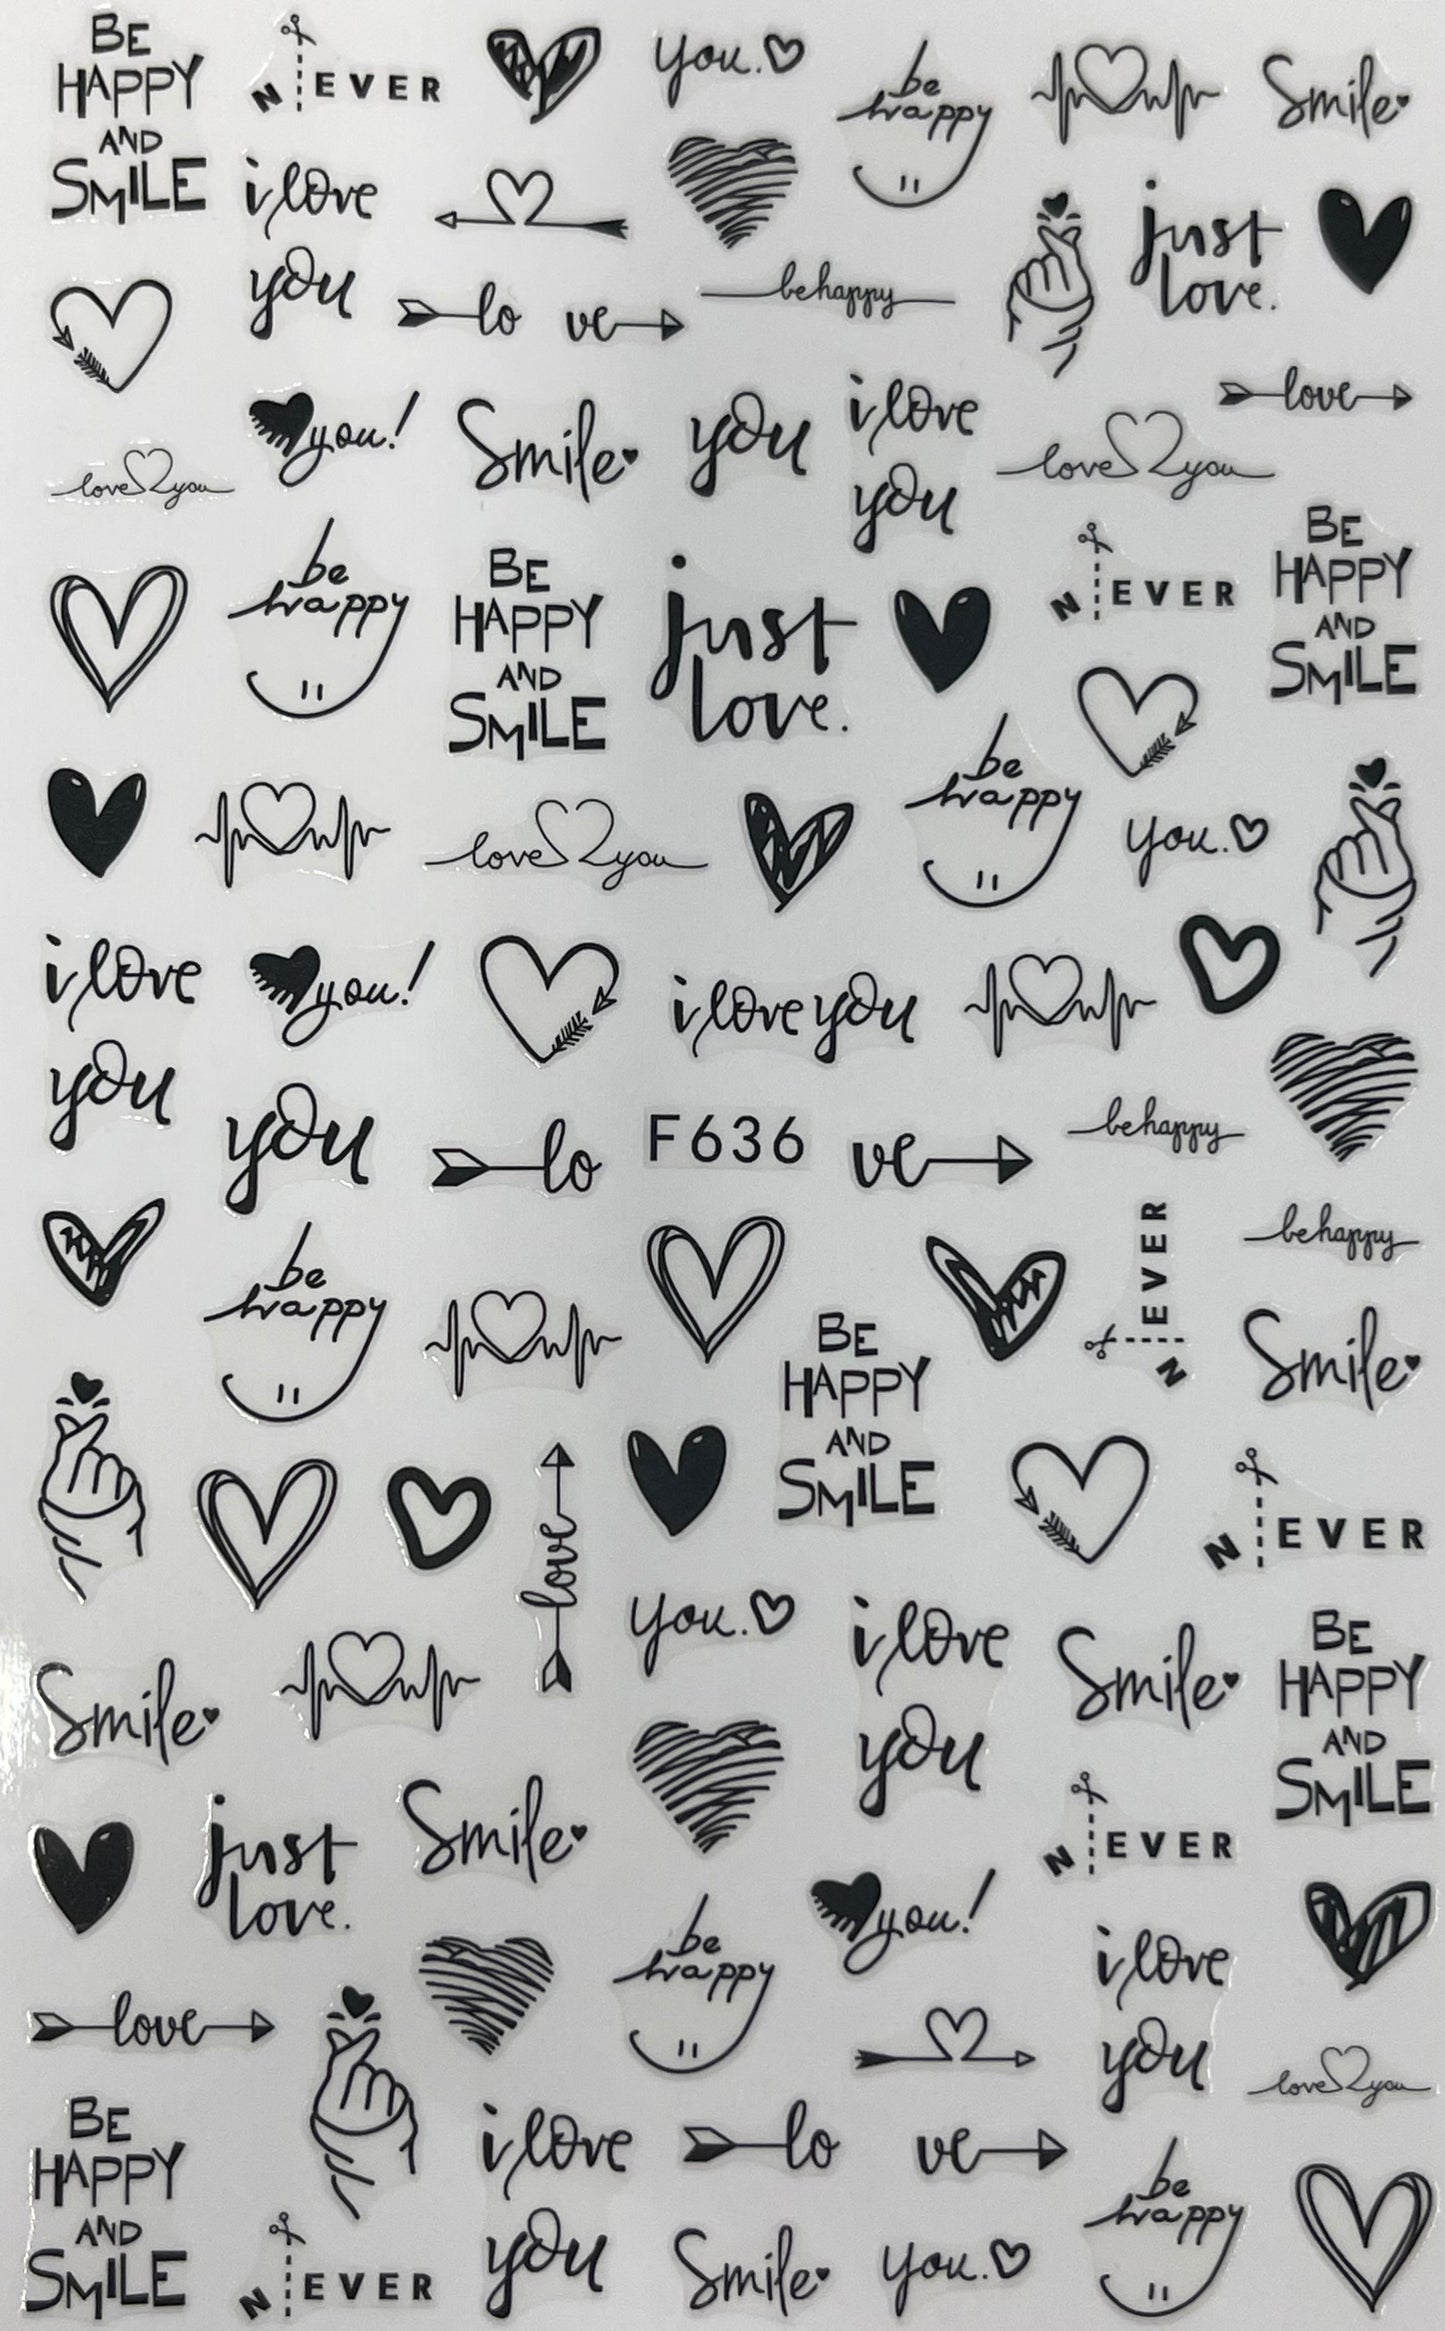 BE
HAPPY
AND
SMILE
N EVER
you.
be
happy
Smile
i love
you
just
love.
lo ve
be happy
you!
Smile
you
i love
you
love
love you
love you
be
happy
BE
HAPPY
AND
SMILE
just
love.
N EVER
BE
HAPPY
AND
SMILE
love you
be
happy
you.
i love
you
you!
i love you
you
lo
F636
ve
be happy
be happy
be
happy
N EVER
BE
HAPPY
AND
SMILE
Smile
love
N EVER
you.
i love
you
Smile
BE
HAPPY
AND
SMILE
Smile
just
love.
Smile
N EVER
you!
be
happy
i love
you
love
love you
BE
HAPPY
AND
SMILE
i love
you
lo ve
be
happy
N EVER
Smile
you.